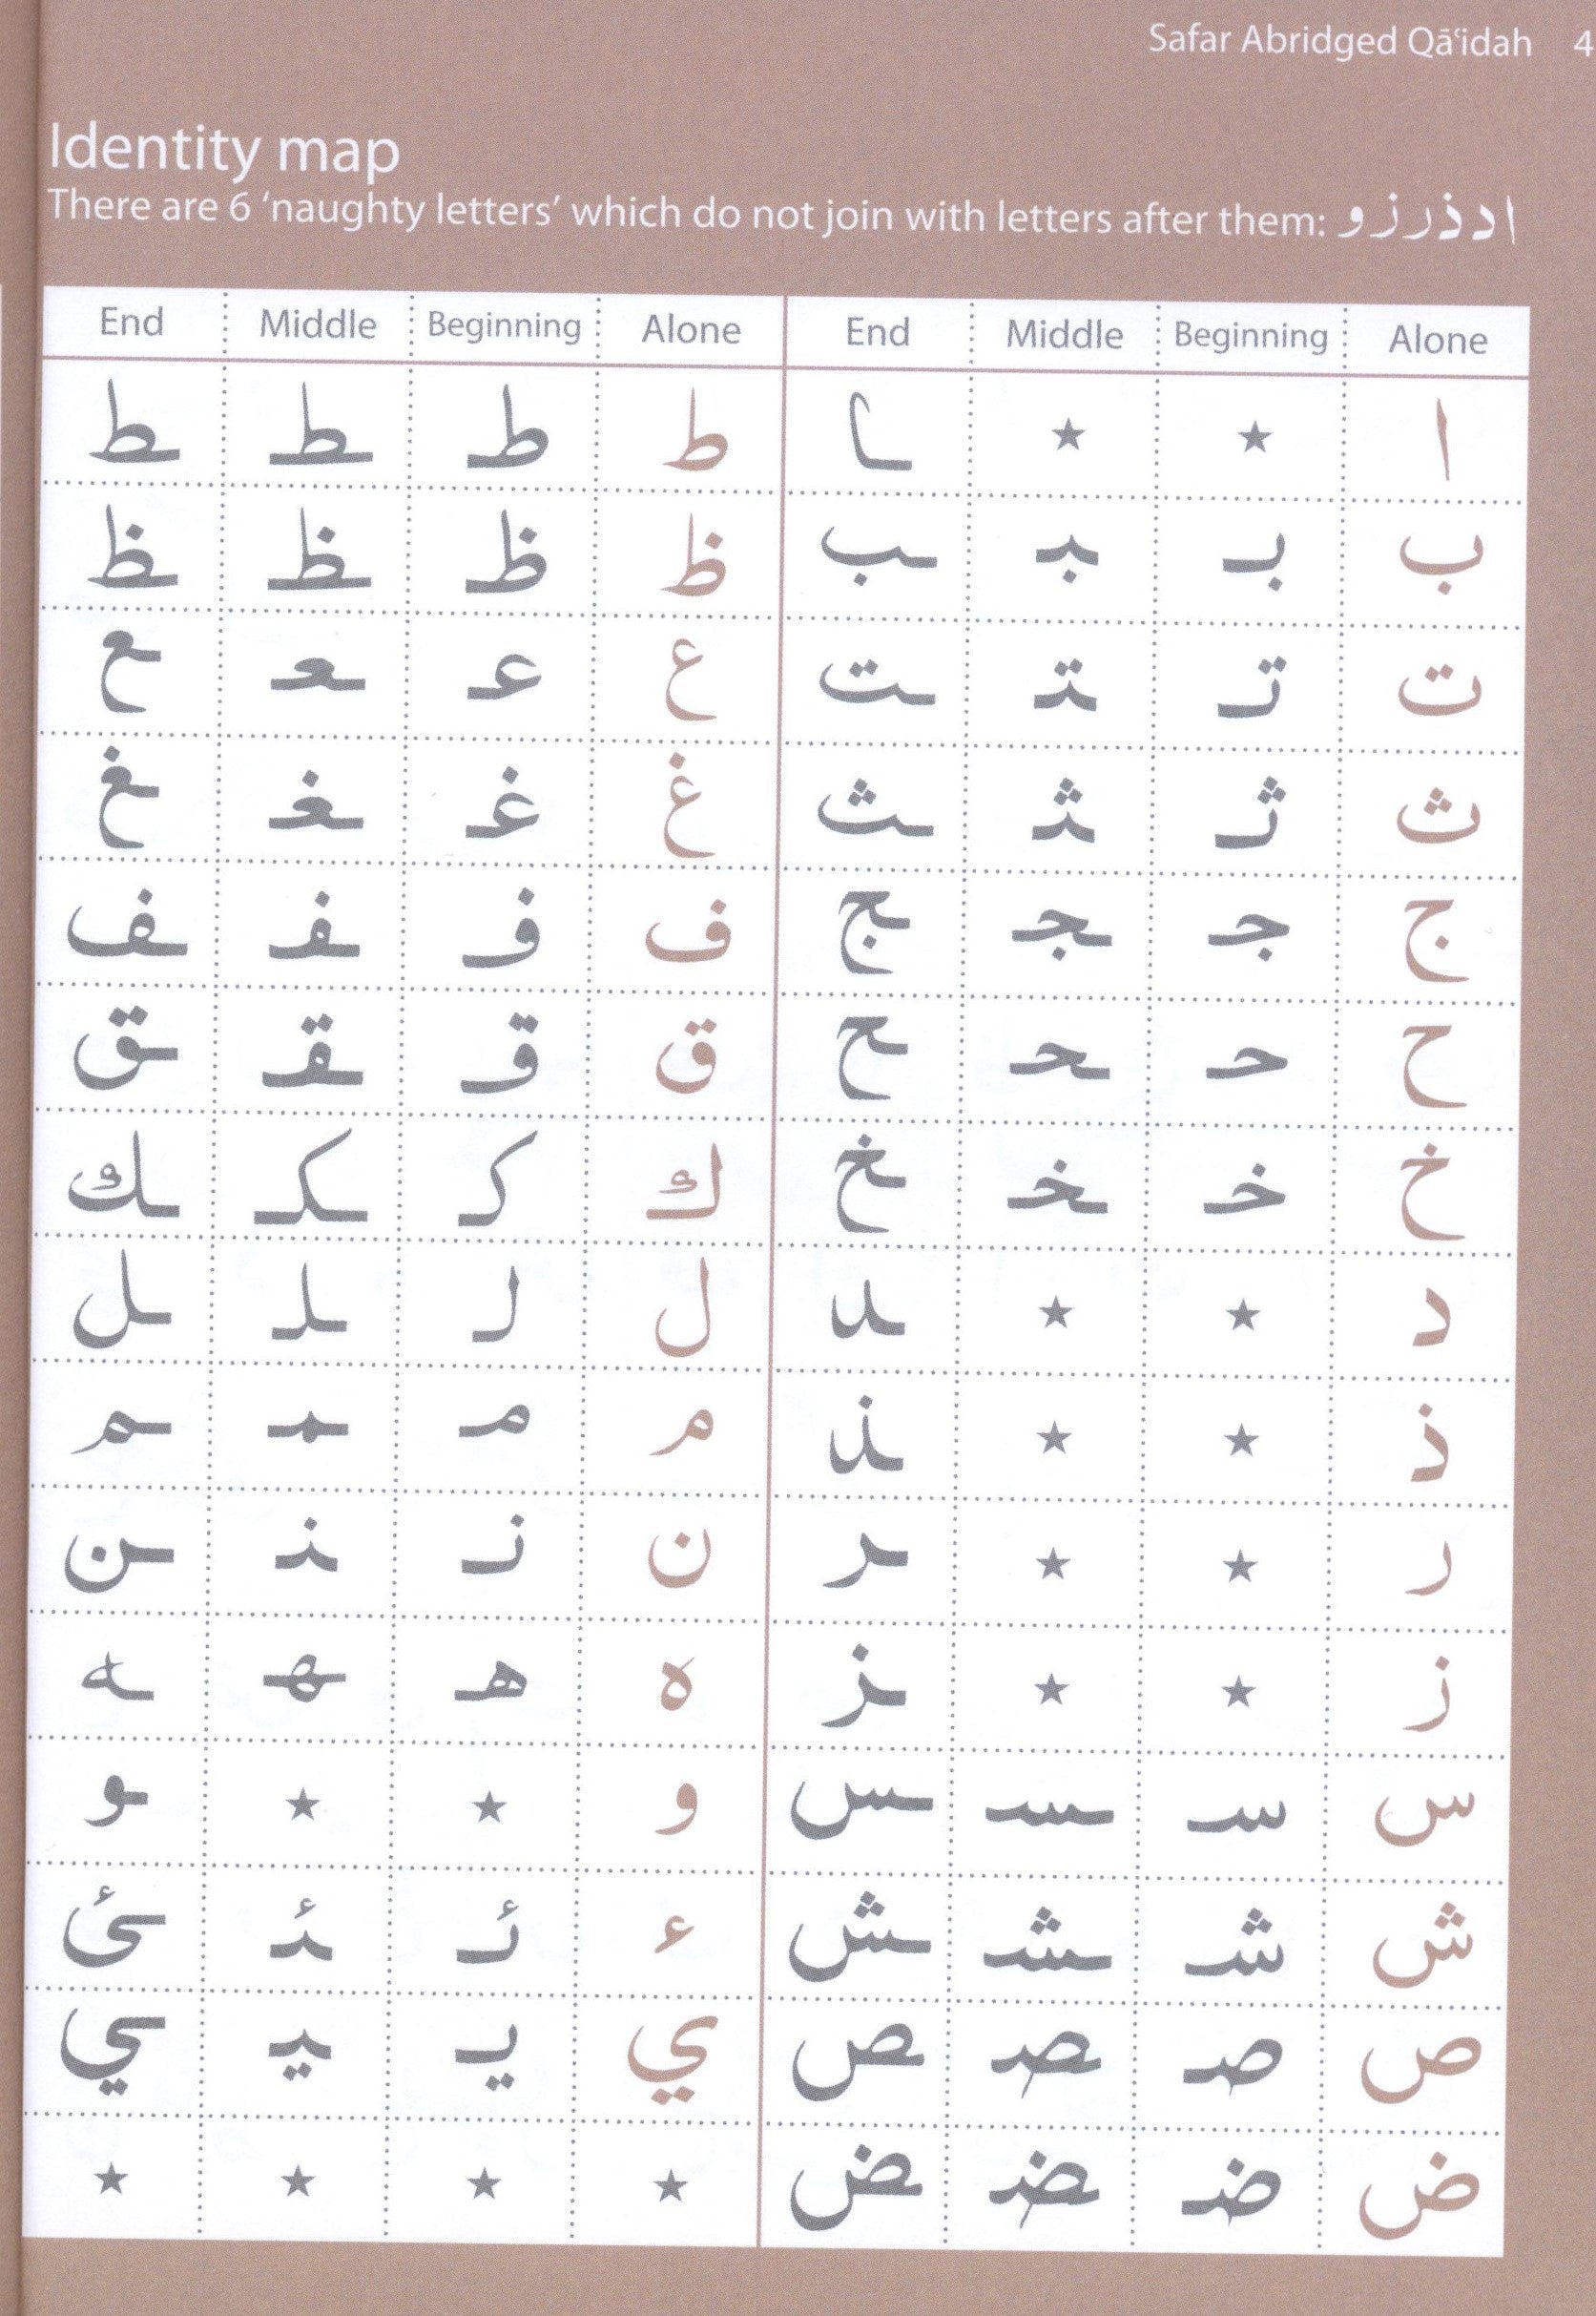 Safar Abridged Qāʿidah 4
Identity map
There are 6 ‘naughty letters’ which do not join with letters after them: ا د ذ ر ز و
End Middle Beginning Alone End Middle Beginning Alone
ا ★ ★ ـا ط طـ ـطـ ـط
ب بـ ـبـ ـب ظ ظـ ـظـ ـظ
ت تـ ـتـ ـت ع عـ ـعـ ـع
ث ثـ ـثـ ـث غ غـ ـغـ ـغ
ج جـ ـجـ ـج ف فـ ـفـ ـف
ح حـ ـحـ ـح ق قـ ـقـ ـق
خ خـ ـخـ ـخ ك كـ ـكـ ـك
د ★ ★ ـد ل لـ ـلـ ـل
ذ ★ ★ ـذ م مـ ـمـ ـم
ر ★ ★ ـر ن نـ ـنـ ـن
ز ★ ★ ـز ه هـ ـهـ ـه
س سـ ـسـ ـس و ★ ★ ـو
ش شـ ـشـ ـش ء ئـ ـئـ ـئ
ص صـ ـصـ ـص ي يـ ـيـ ـي
ض ضـ ـضـ ـض ★ ★ ★ ★